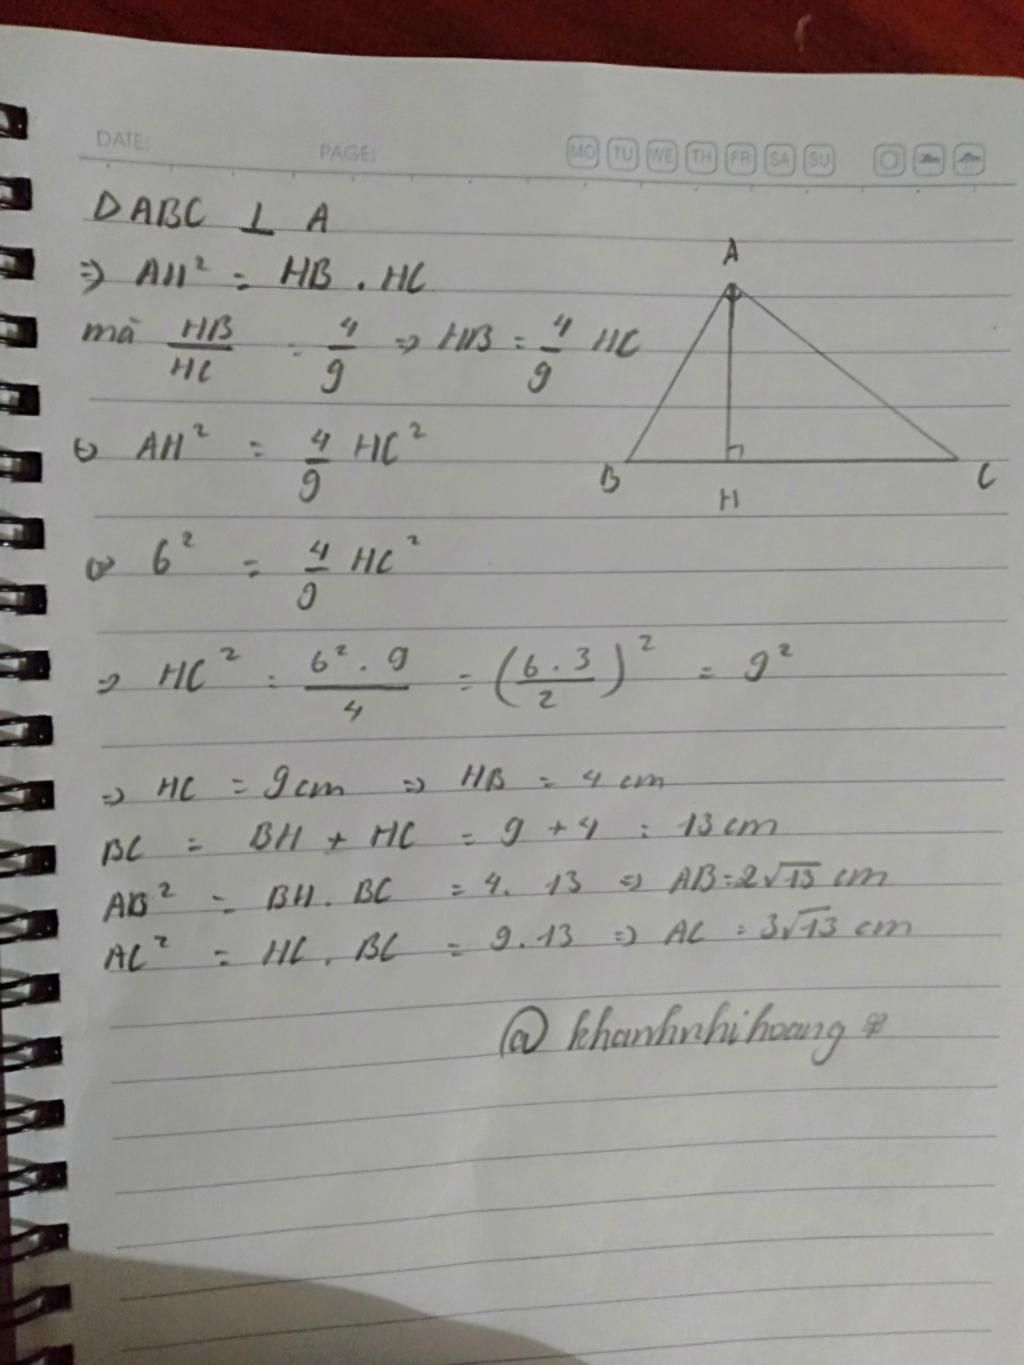 DATE: PAGE: MO TU WE TH FR SA SU
DABC ⊥ A
⇒ AH² = HB . HC
mà HB/HC = 4/9 ⇒ HB = 4/9 HC
⇔ AH² = 4/9 HC²
⇔ 6² = 4/9 HC²
⇒ HC² = 6² . 9 / 4 = (6 . 3 / 2)² = 9²
⇒ HC = 9 cm ⇒ HB = 4 cm
BC = BH + HC = 9 + 4 = 13 cm
AB² = BH . BC = 4 . 13 ⇒ AB = 2√13 cm
AC² = HC . BC = 9 . 13 ⇒ AC = 3√13 cm
@ khanhnhihoang
A
B
H
C